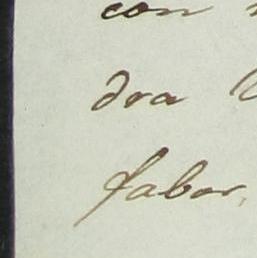 con
dra
favor.